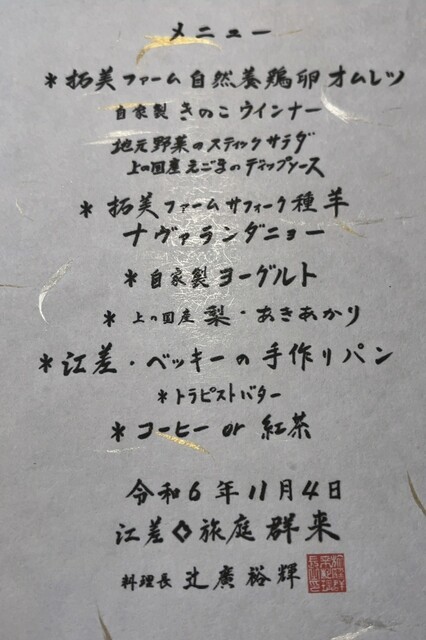 メニュー
* 拓美ファーム自然養鶏卵オムレツ
自家製 きのこウインナー
地元野菜のスティックサラダ
上の国産えごまのディップソース
* 拓美ファームサフォーク種羊
ナヴァランダニョー
* 自家製ヨーグルト
* 上の国産 梨・あきあかり
* 江差・ベッキーの手作りパン
* トラピストバター
* コーヒー or 紅茶
令和6年11月4日
江差◇旅庭群来
料理長 辻廣裕輝